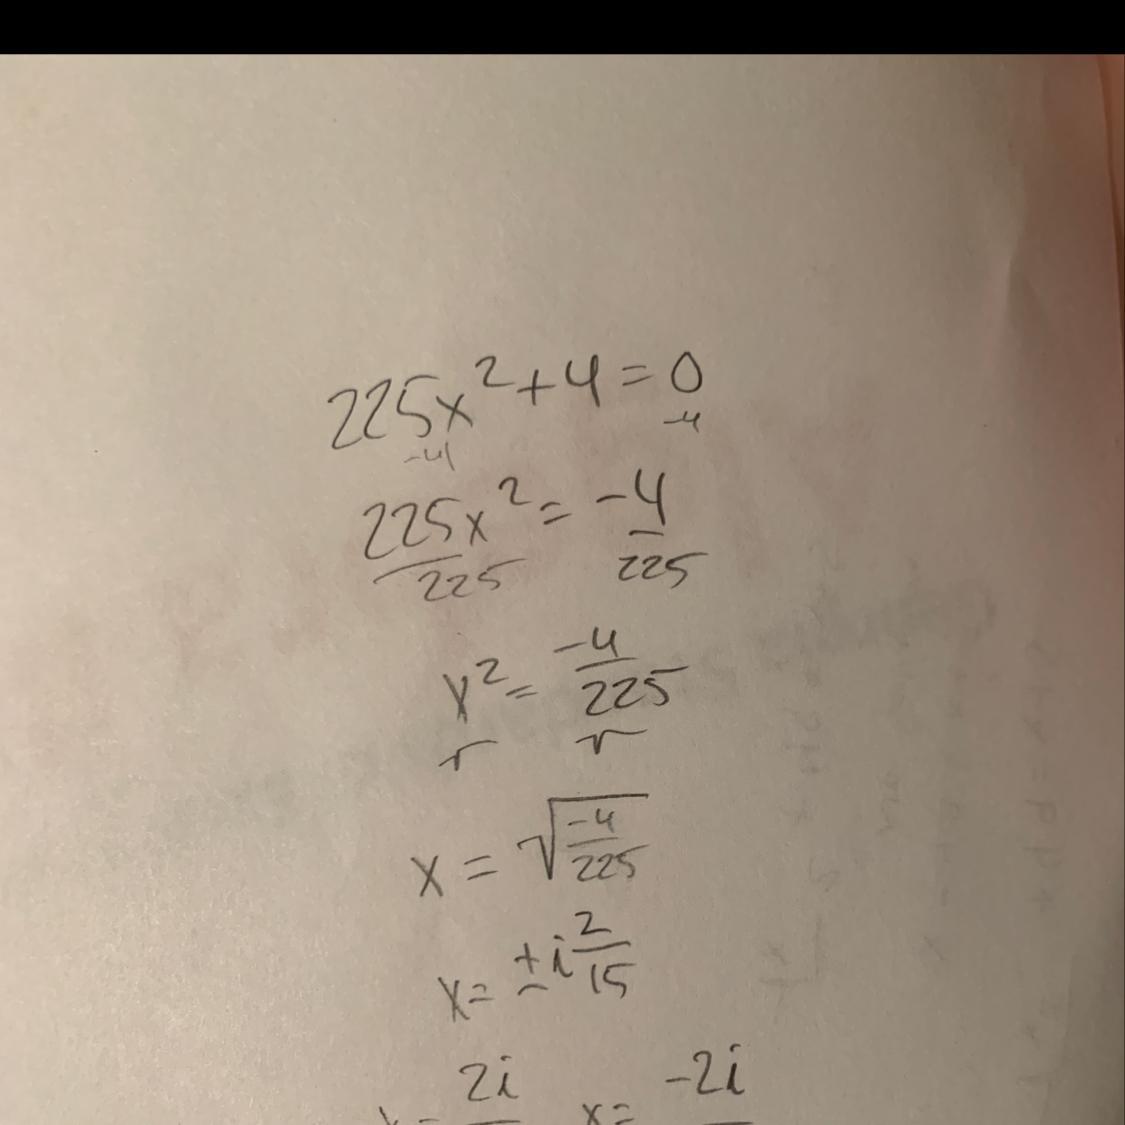 225x² + 4 = 0
-4 -4
225x² = -4
225 225
x² = -4/225
√ √
x = √(-4/225)
x = ± i 2/15
2i -2i
x = x =